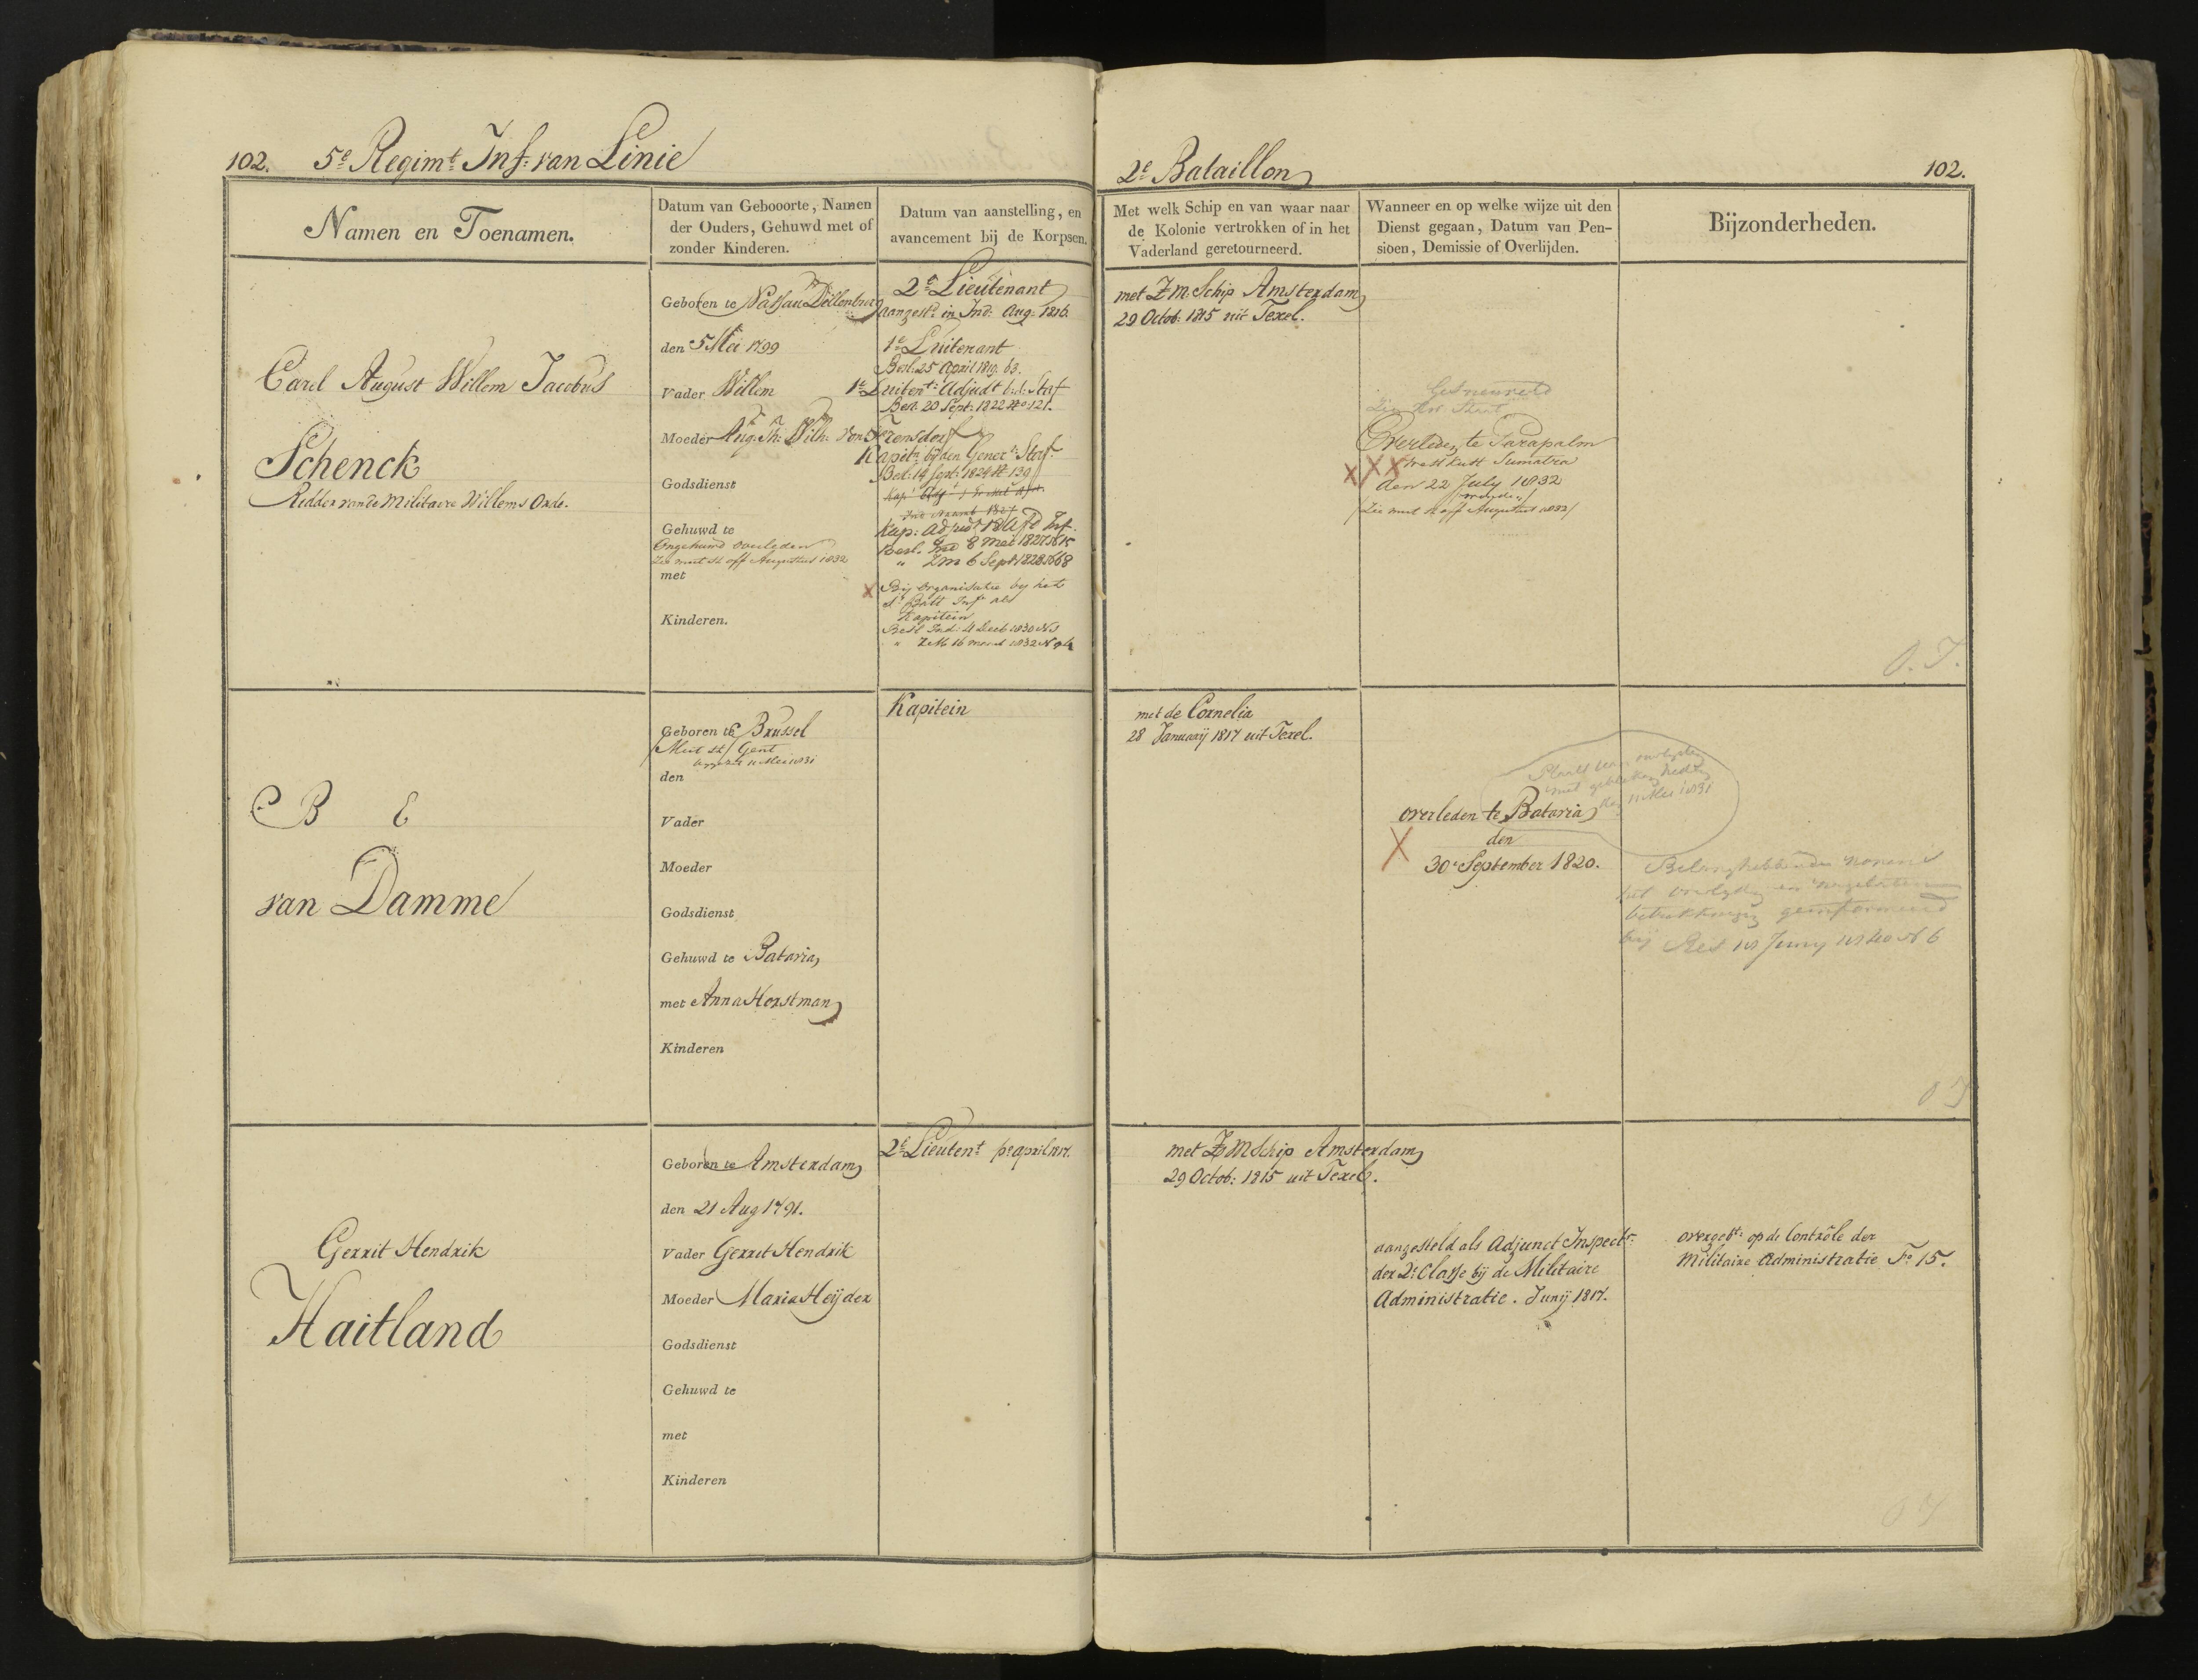 102. 5e Regimt Inf: van Linie
2e Bataillon
102.
Namen en Toenamen.
Datum van Gebooorte, Namen
der Ouders, Gehuwd met of
zonder Kinderen.
Datum van aanstelling, en
avancement bij de Korpsen.
Met welk Schip en van waar naar
de Kolonie vertrokken of in het
Vaderland geretourneerd.
Wanneer en op welke wijze uit den
Dienst gegaan, Datum van Pen-
sioen, Demissie of Overlijden.
Bijzonderheden.
Carel August Willem Jacobus
Schenck
Ridder van de Militaire Willems Orde.
Geboren te Nassau Dillenburg
den 5 Mei 1799
Vader Willem
Moeder Aug: Th: Wilh: von Frensdorf
Godsdienst
Gehuwd te
Ongehuwd overleden
Zie mut st off Augustus 1832
met
Kinderen.
2e Lieutenant
aangest: in Ind: Aug: 1816.
1e Luitenant
Besl: 25 April 1819. 63.
1e Luitent: Adjudt b: d: Staf
Besl. 20 Sept: 1822 No 121.
Kapitn bij den Generln Staf.
Besl: 14 Sept: 1824 No 139
Kap: Adjudt 18 Afd Inf.
Besl. Ind 8 Mei 1827 No 15
" ZM 6 Sept 1828 No 68
Bij Organisatie by het
Batt Inf als
Kapitein
Besl Ind: 4 Decb 1830 No 1
" ZM 16 maart 1832 No 94
met ZM. Schip Amsterdam
29 Octob: 1815 uit Texel.
Overleden te Tarapalm
West kust Sumatra
den 22 July 1832
(Zie mut st off Augustus 1832)
O. I.
B E
van Damme
Geboren te Brussel
(Mut st) Gent
den
Vader
Moeder
Godsdienst
Gehuwd te Batavia,
met Anna Horstman
Kinderen
Kapitein
met de Cornelia
28 Januarij 1817 uit Texel.
11 Mei 1831
overleden te Batavia
den
30e September 1820.
Belanghebbenden nopens
het overlyden en nagelaten
betrekkingen geinformeerd
bij Res 18 Juny 1840 No 6
O I
Gerrit Hendrik
Haitland
Geboren te Amsterdam
den 21 Aug 1791.
Vader Gerrit Hendrik
Moeder Maria Heijder
Godsdienst
Gehuwd te
met
Kinderen
2e Lieutent po april 1817.
met ZM Schip Amsterdam
29 Octob: 1815 uit Texel.
aangesteld als Adjunct Inspectr:
der 2e Classe bij de Militaire
Administratie. Junij 1817.
overgebt: op de Contrôle der
Militaire Administratie Fo 15.
O I